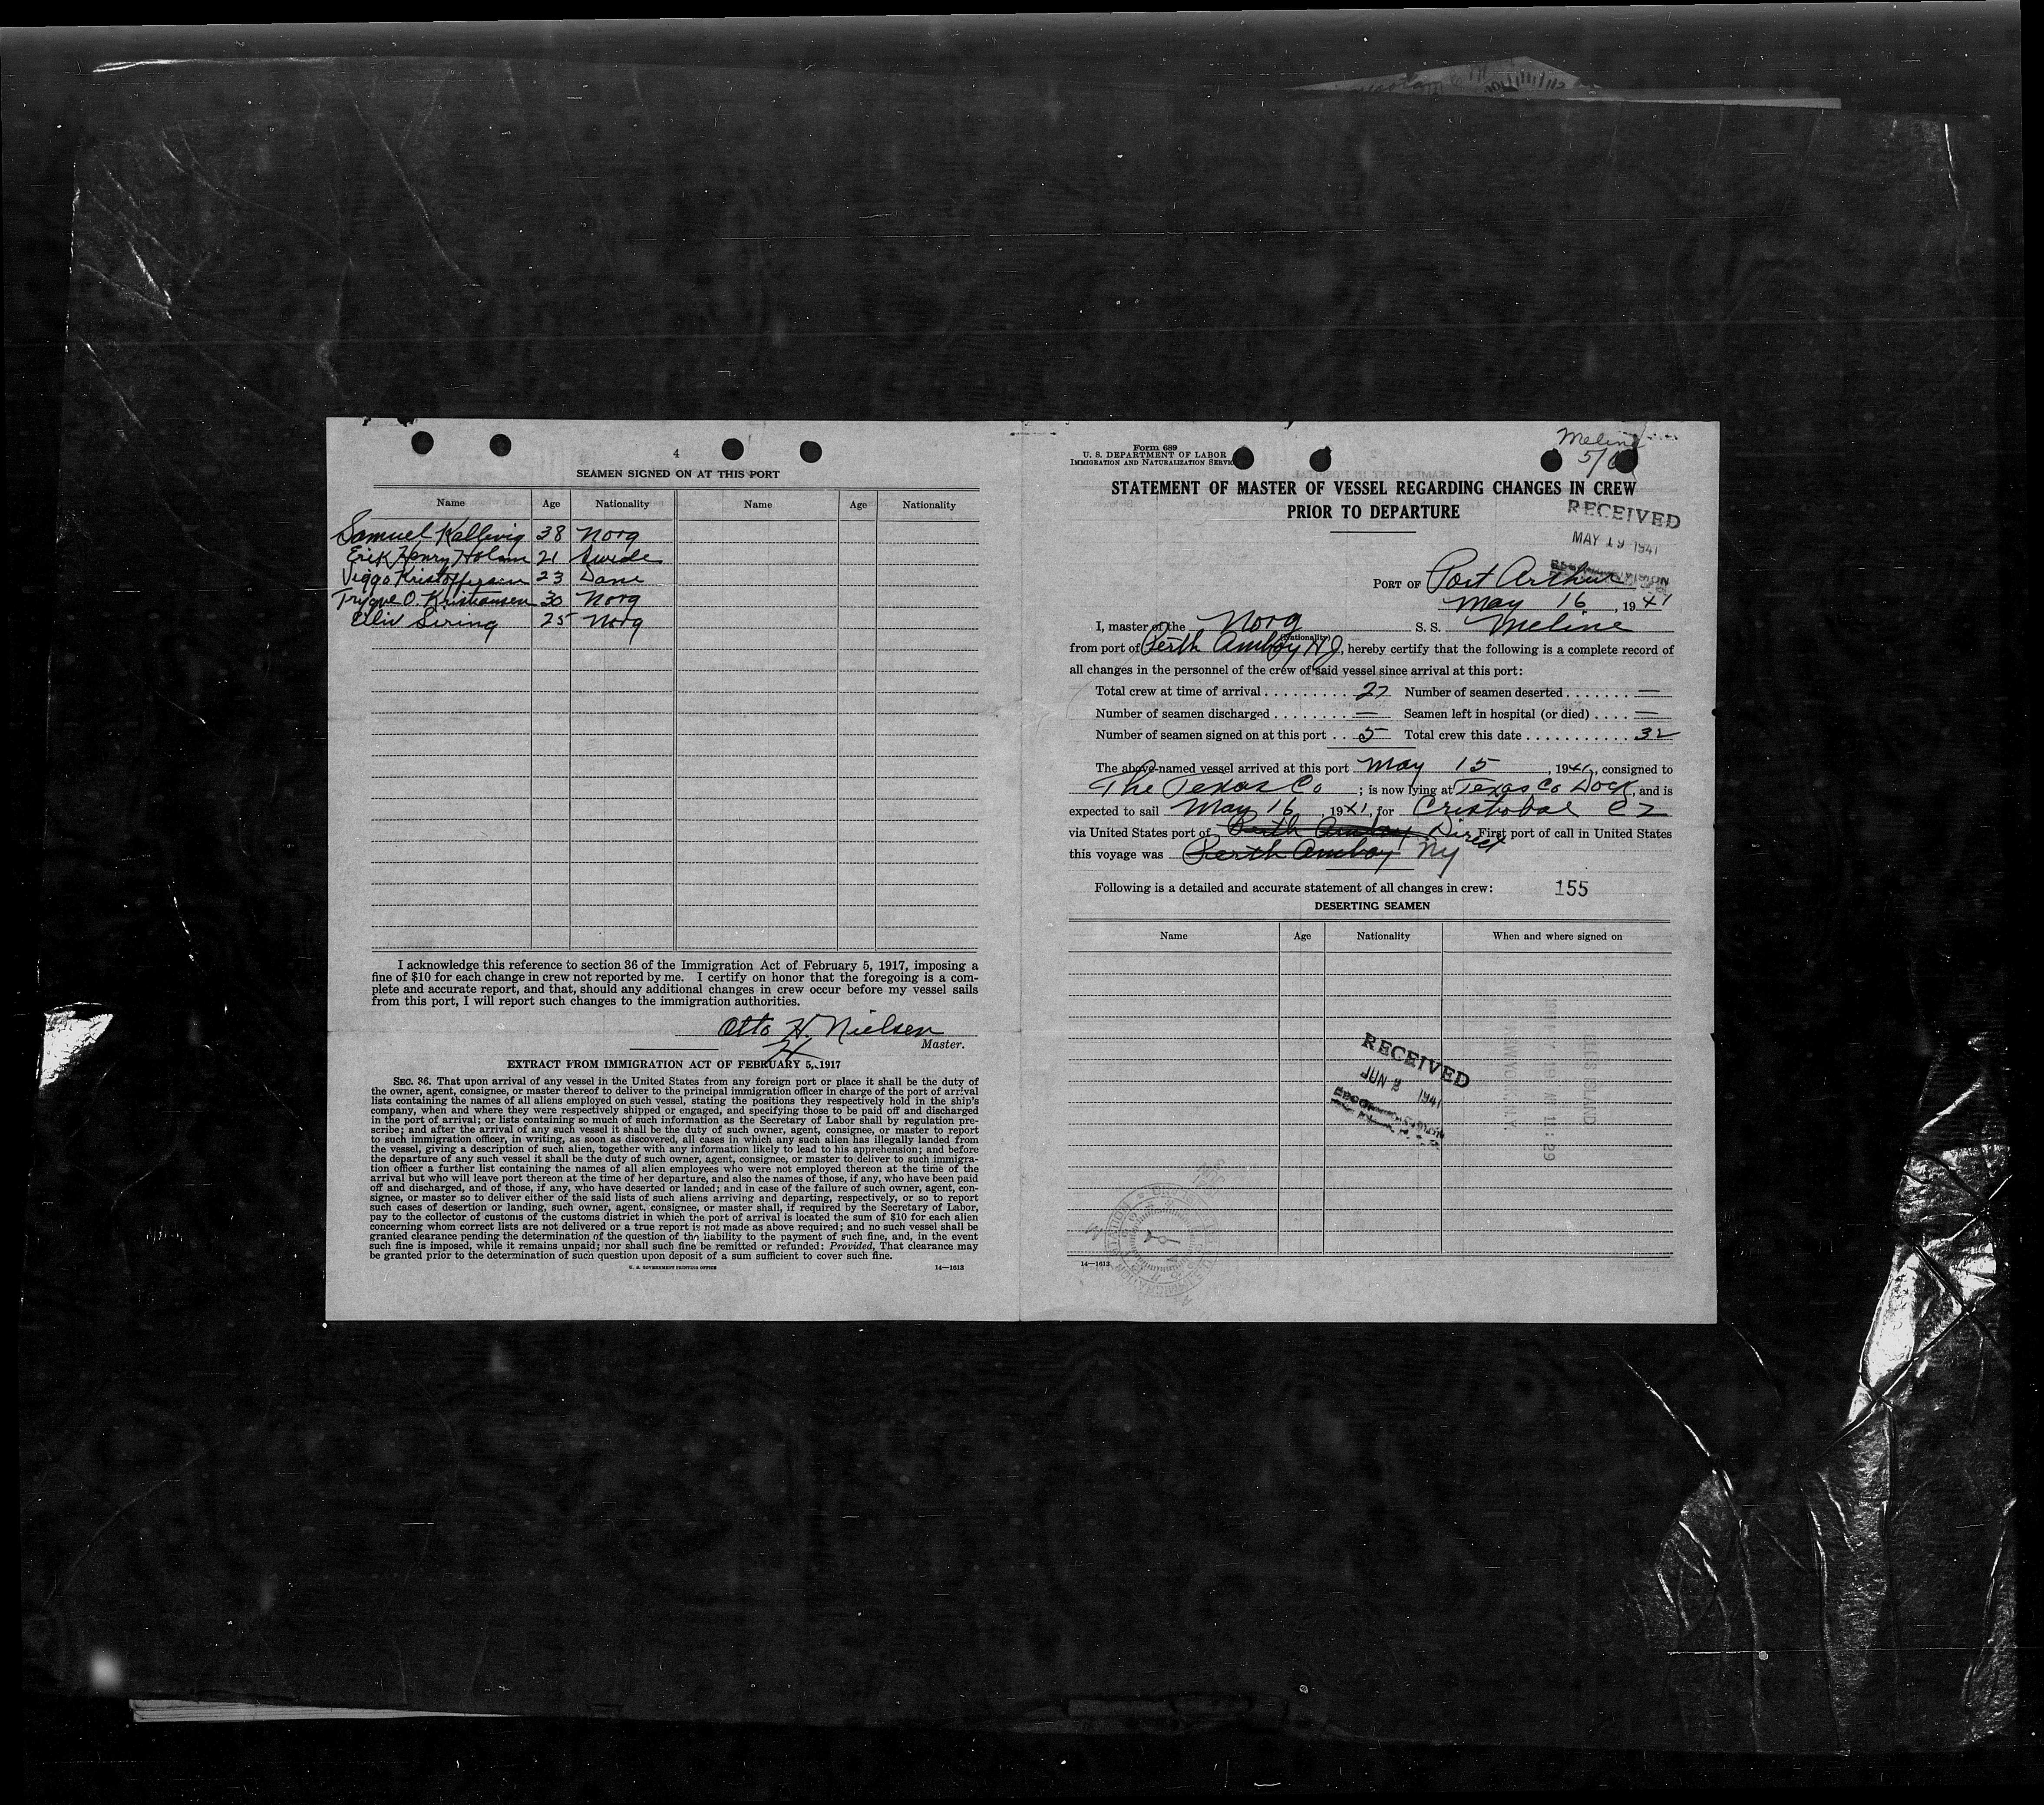 4
SEAMEN SIGNED ON AT THIS PORT
Name Age Nationality Name Age Nationality
Samuel Kallevig 38 Norg
Erik Henry Holmn 21 Swede
Viggo Kristoffersen 23 Dane
Trygve O. Kristiansen 30 Norg
Eiliv Siring 25 Norg
I acknowledge this reference to section 36 of the Immigration Act of February 5, 1917, imposing a
fine of $10 for each change in crew not reported by me. I certify on honor that the foregoing is a com-
plete and accurate report, and that, should any additional changes in crew occur before my vessel sails
from this port, I will report such changes to the immigration authorities.
Otto H. Nielsen
Master.
EXTRACT FROM IMMIGRATION ACT OF FEBRUARY 5, 1917
SEC. 36. That upon arrival of any vessel in the United States from any foreign port or place it shall be the duty of
the owner, agent, consignee, or master thereof to deliver to the principal immigration officer in charge of the port of arrival
lists containing the names of all aliens employed on such vessel, stating the positions they respectively hold in the ship's
company, when and where they were respectively shipped or engaged, and specifying those to be paid off and discharged
in the port of arrival; or lists containing so much of such information as the Secretary of Labor shall by regulation pre-
scribe; and after the arrival of any such vessel it shall be the duty of such owner, agent, consignee, or master to report
to such immigration officer, in writing, as soon as discovered, all cases in which any such alien has illegally landed from
the vessel, giving a description of such alien, together with any information likely to lead to his apprehension; and before
the departure of any such vessel it shall be the duty of such owner, agent, consignee, or master to deliver to such immigra-
tion officer a further list containing the names of all alien employees who were not employed thereon at the time of the
arrival but who will leave port thereon at the time of her departure, and also the names of those, if any, who have been paid
off and discharged, and of those, if any, who have deserted or landed; and in case of the failure of such owner, agent, con-
signee, or master so to deliver either of the said lists of such aliens arriving and departing, respectively, or so to report
such cases of desertion or landing, such owner, agent, consignee, or master shall, if required by the Secretary of Labor,
pay to the collector of customs of the customs district in which the port of arrival is located the sum of $10 for each alien
concerning whom correct lists are not delivered or a true report is not made as above required; and no such vessel shall be
granted clearance pending the determination of the question of the liability to the payment of such fine, and, in the event
such fine is imposed, while it remains unpaid; nor shall such fine be remitted or refunded: Provided, That clearance may
be granted prior to the determination of such question upon deposit of a sum sufficient to cover such fine.
U. S. GOVERNMENT PRINTING OFFICE 14—1613
Meline
Form 689
U. S. DEPARTMENT OF LABOR
IMMIGRATION AND NATURALIZATION SERVICE
STATEMENT OF MASTER OF VESSEL REGARDING CHANGES IN CREW
PRIOR TO DEPARTURE
RECEIVED
MAY 19 1941
PORT OF Port Arthur
May 16, 1941
I, master of the Norg S. S. Meline
(Nationality)
from port of Perth Amboy NJ, hereby certify that the following is a complete record of
all changes in the personnel of the crew of said vessel since arrival at this port:
Total crew at time of arrival .......... 27 Number of seamen deserted ....... —
Number of seamen discharged ........ — Seamen left in hospital (or died) .... —
Number of seamen signed on at this port .. 5 Total crew this date ........... 32
The above-named vessel arrived at this port May 15, 1941, consigned to
The Texas Co; is now lying at Texas Co Dock, and is
expected to sail May 16 1941, for Cristobal CZ
via United States port of Perth Amboy Direct First port of call in United States
this voyage was Perth Amboy NY
Following is a detailed and accurate statement of all changes in crew: 155
DESERTING SEAMEN
Name Age Nationality When and where signed on
RECEIVED
JUN 2 1941
ELLIS ISLAND
14—1613